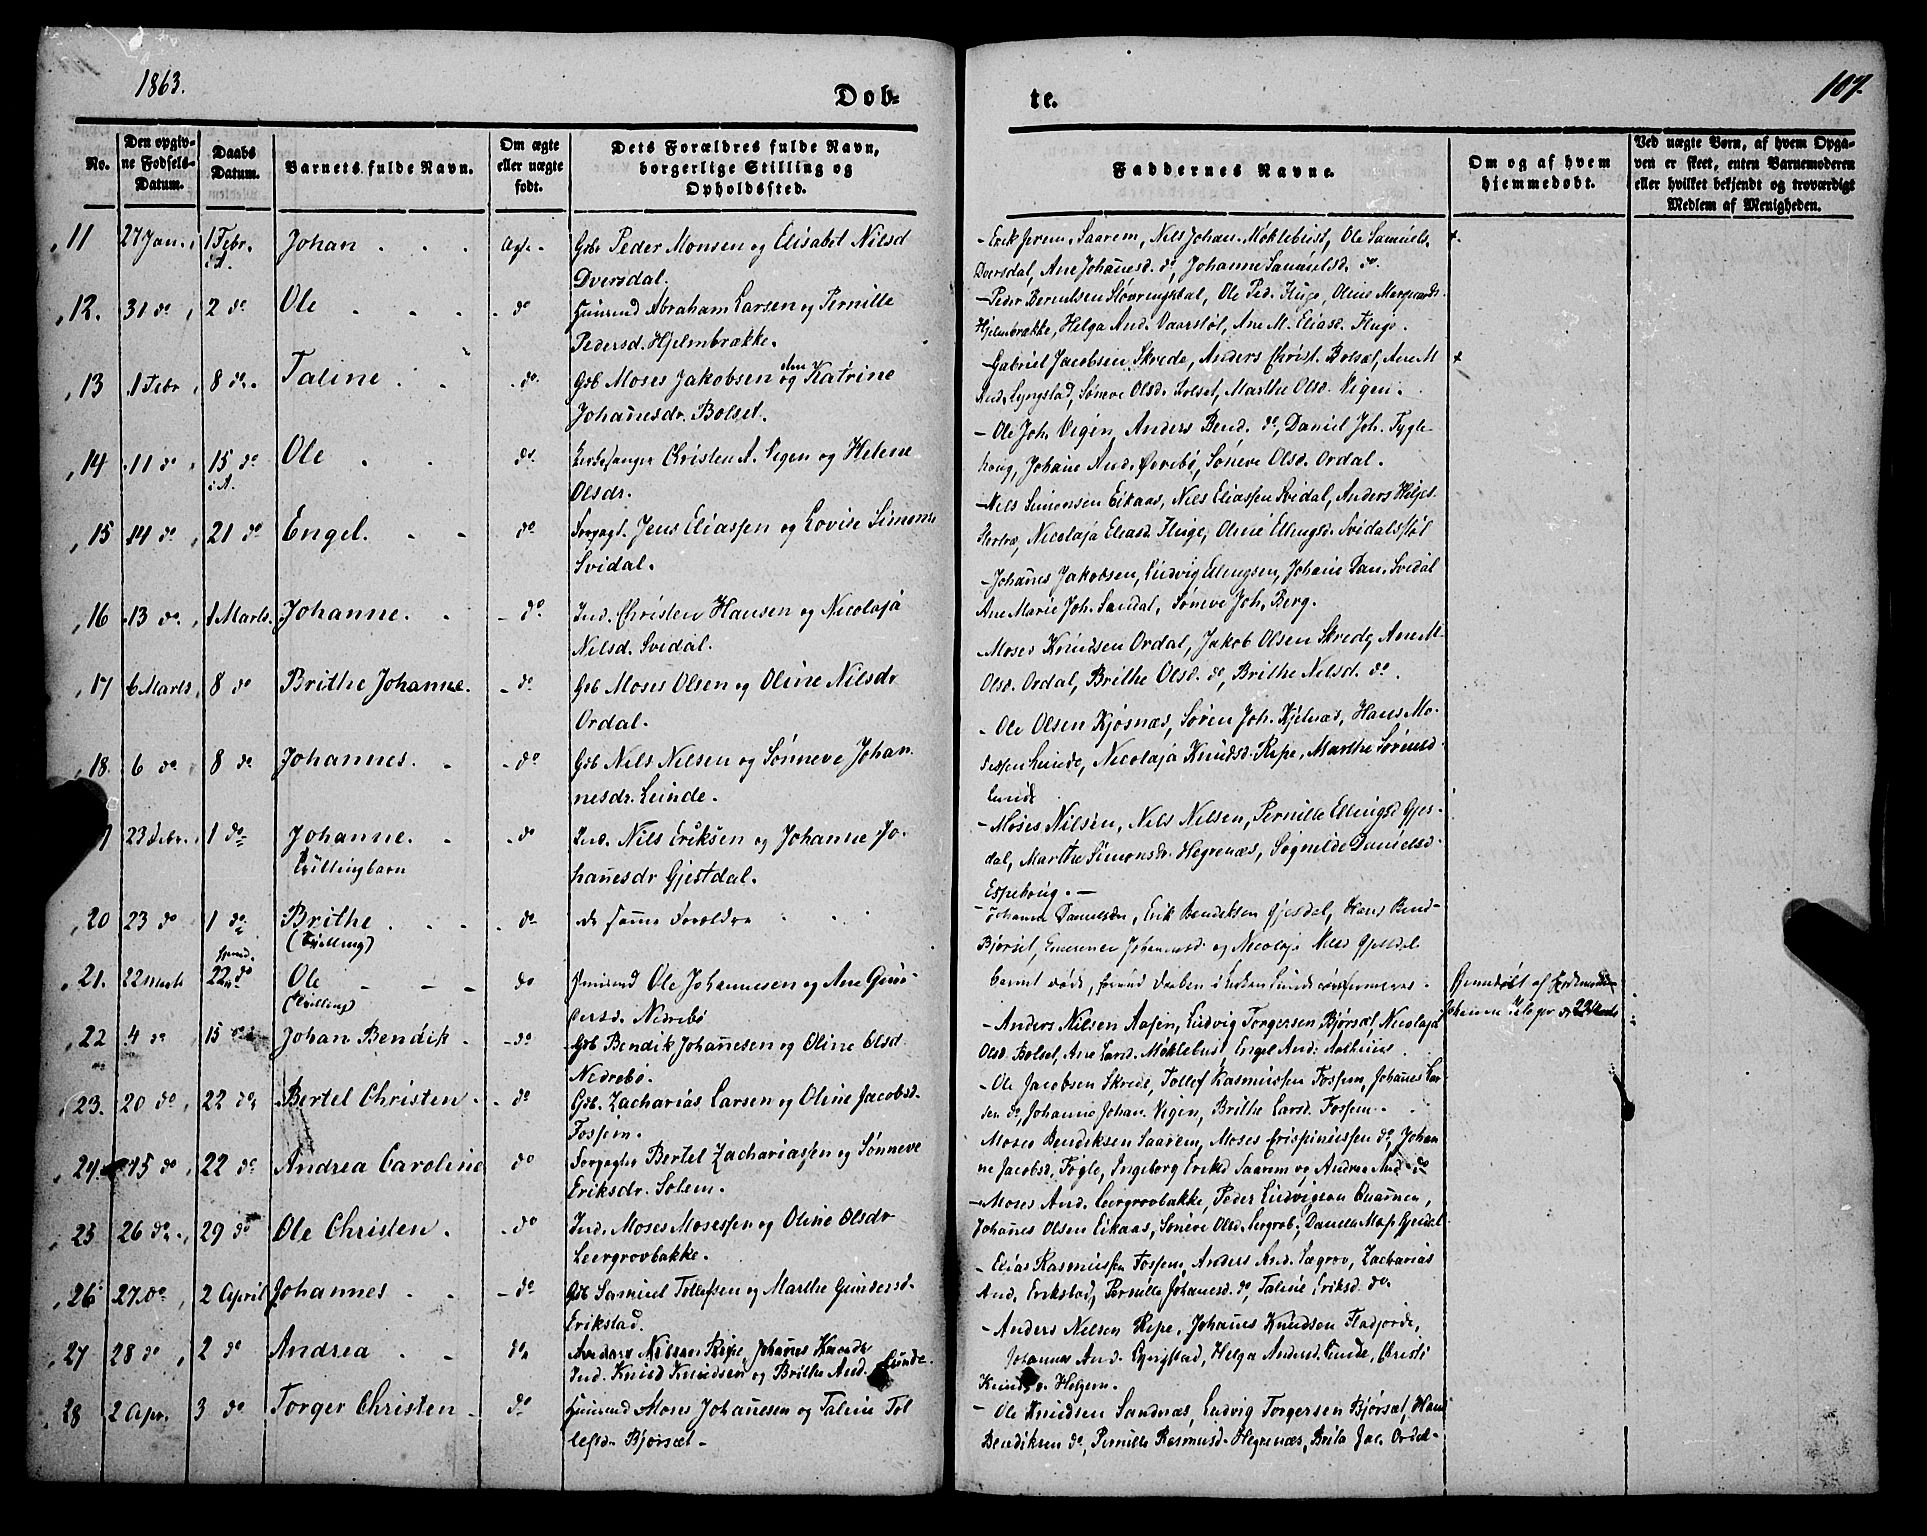 1863.
Døb-
te.
107.
No.
Den opgiv-
ne Fødsels-
Datum.
Daabs
Datum.
Barnets fulde Navn.
Om ægte
eller uægte
født.
Dets Forældres fulde Navn,
borgerlige Stilling og
Opholdssted.
Faddernes Navne.
Om og af hvem
hjemmedøbt.
Ved uægte Børn, af hvem Opga-
ven er skeet, enten Barnemoderen
eller hvilket bekjendt og troværdigt
Medlem af Menigheden.
11 27 Jan. 1 Febr. Johan Ægte Gbr Peder Monsen og Elisabet Nilsd
Dversdal.
Erik Jerem. Saarem, Nils Johan. Møklebust, Ole Samuels.
Dversdal, Ane Johañesd. do, Johanne Samuelsd. do.
12. 31 do 2 do Ole do Huusmd Abraham Larsen og Pernille
Pedersd. Hjelmbrække.
Peder Berentsen Støvringsdal, Ole Ped. Huge, Oline
Hjelmbrække, Helga And. Vaarstøl, Ane M. Eliasd. Fluge.
13 1 Febr 8 do. Taline do. Gbr Moses Jakobsen og Katrine
Johañesdr. Bolset.
Gabriel Jacobsen Skrede, Anders Christ. Bolsæt, Ane M
And. Lyngstad, Søneve Olsd. Solset, Marthe Olsd. Vigen.
14 11 do 15 do Ole do. Kirkesanger Christen A. Vegen og Helene
Olsdr.
Ole Joh. Vigen, Anders Bend. do, Daniel Joh. Fygle
houg, Johañe And. Øvrebø, Søneve Olsd. Ordal.
15 14 do 21 do Engel. do Forpagt. Jens Eliassen og Lovise Simons
Svidal.
Nils Simonsen Eikaas, Nils Eliassen Svidal, Anders Helges.
Nicolaja Eliasd. Fluge, Oline Ellingsd. Svidalsstøl
16 13 do. 1 Marts. Johanne. do. Ind. Christen Hansen og Nicolaja
Nilsd. Svidal.
Johañes Jakobsen, Ludvig Ellingsen, Johañe Dan. Svidal
Ane Marie Joh. Sandal, Søneve Joh. Berg.
17 6 Marts 8 do Brithe Johanne. do Gbr Moses Olsen og Oline Nilsdr
Ordal.
Moses Knudsen Ordal, Jakob Olsen Skrede, Ane M.
Olsd. Ordal, Brithe Olsd. do, Brithe Nilsd. do.
18. 6 do 8 do Johannes. do Gbr Nils Nilsen og Sønneve Johan
nesdr. Lunde.
Ole Olsen Kjøsnæs, Søren Joh. Kjelnæs, Hans Mo-
sessen Lunde, Nicolaja Knudsd. Ripe, Marthe Sørensd
Lunde
23 Febr. 1 do Johanne. do Ind. Nils Eriksen og Johanne Jo-
Tvillingbarn
hañesdr Gjesdal.
Moses Nilsen, Nils Nilsen, Pernille Ellingsd Gjes-
dal, Marthe Simonsdr. Hegrenæs, Søgnilde Danielsd.
Espehoug.
20 23 do 1 do Brithe do do samme Forældre
(Tvilling)
Johanne Danielsdr, Erik Bendiksen Gjesdal, Hans Bend-
Bjørset, Johannesd og Nicolaja Nilsd Gjesdal
21. 22 Marts 22 do Ole do Huusmd Ole Johannesen og Ane Gun-
(Tvilling)
dersd. Nedrebø
Barnet døde, forend Daaben i Kirken kunde confirmeres.
Hjemdøbt af Jordemoder
22 4 do 15 do Johan Bendik. do Gbr Bendik Johañesen og Oline Olsd
Nedrebø.
Anders Nilsen Aasen, Ludvig Torgersen Bjørsæt, Nicolaja
Olsd. Bolset, Ane Larsd. Møklebust, Engel And.
23. 20 do 22 do. Bertel Christen. do Gbr. Zacharias Larsen og Oline Jacobsd.
Fossem.
Ole Jacobsen Skrede, Tollef Rasmussen Fossem, Johañes Lar-
sen do, Johañe Johan. Vigen, Brithe Larsd. Fossem.
24. 15 do 22 do Andrea Caroline do Forpagter Bertel Zachariassen og Sønneve
Eriksdr. Solem.
Moses Bendiksen Saarem, Moses Crispinussen do, Johan
ne Jacobsd. Føgle, Ingeborg Eriksd Saarem og Andrea And. do
25 26 do. 29 do Ole Christen. do Ind. Moses Mosessen og Oline Olsdr
Leergrovbakke.
Moses And. Leergrovbakke, Peder Ludvigsen Quamen,
Johañes Olsen Eikaas, Søneve Olsd. Lergrob, Daniella Mos. Gjesdal
26 27. do 2 April Johannes do Gbr Samuel Tollefsen og Marthe Gundersd.
Erikstad.
Elias Rasmussen Fossem, Anders And. Lægrov, Zacharias
And. Erikstad, Pernille Johañesd. do, Taline Eriksd. do.
27 28 do 2 do Andrea do. Anders Nilsen Ripe, Johañes Knudsen
Ind. Knud Knudsen og Brithe And. Lunde.
Anders Nilsen Ripe, Johañes Knudsen Fladjorde,
Johannes And. Lyngstad, Helga Andersd. Lunde, Christi
Knudsd. Helgem.
28 2 Apr. 3 do Torger Christen do Huusmd Moses Johañesen og Taline Tol
lefsd. Bjørsæt.
Ole Knudsen Sandnæs, Ludvig Torgersen Bjørsæt, Hans
Bendiksen do, Pernille Rasmusd. Hegrenæs, Brita Jac. Ordal.